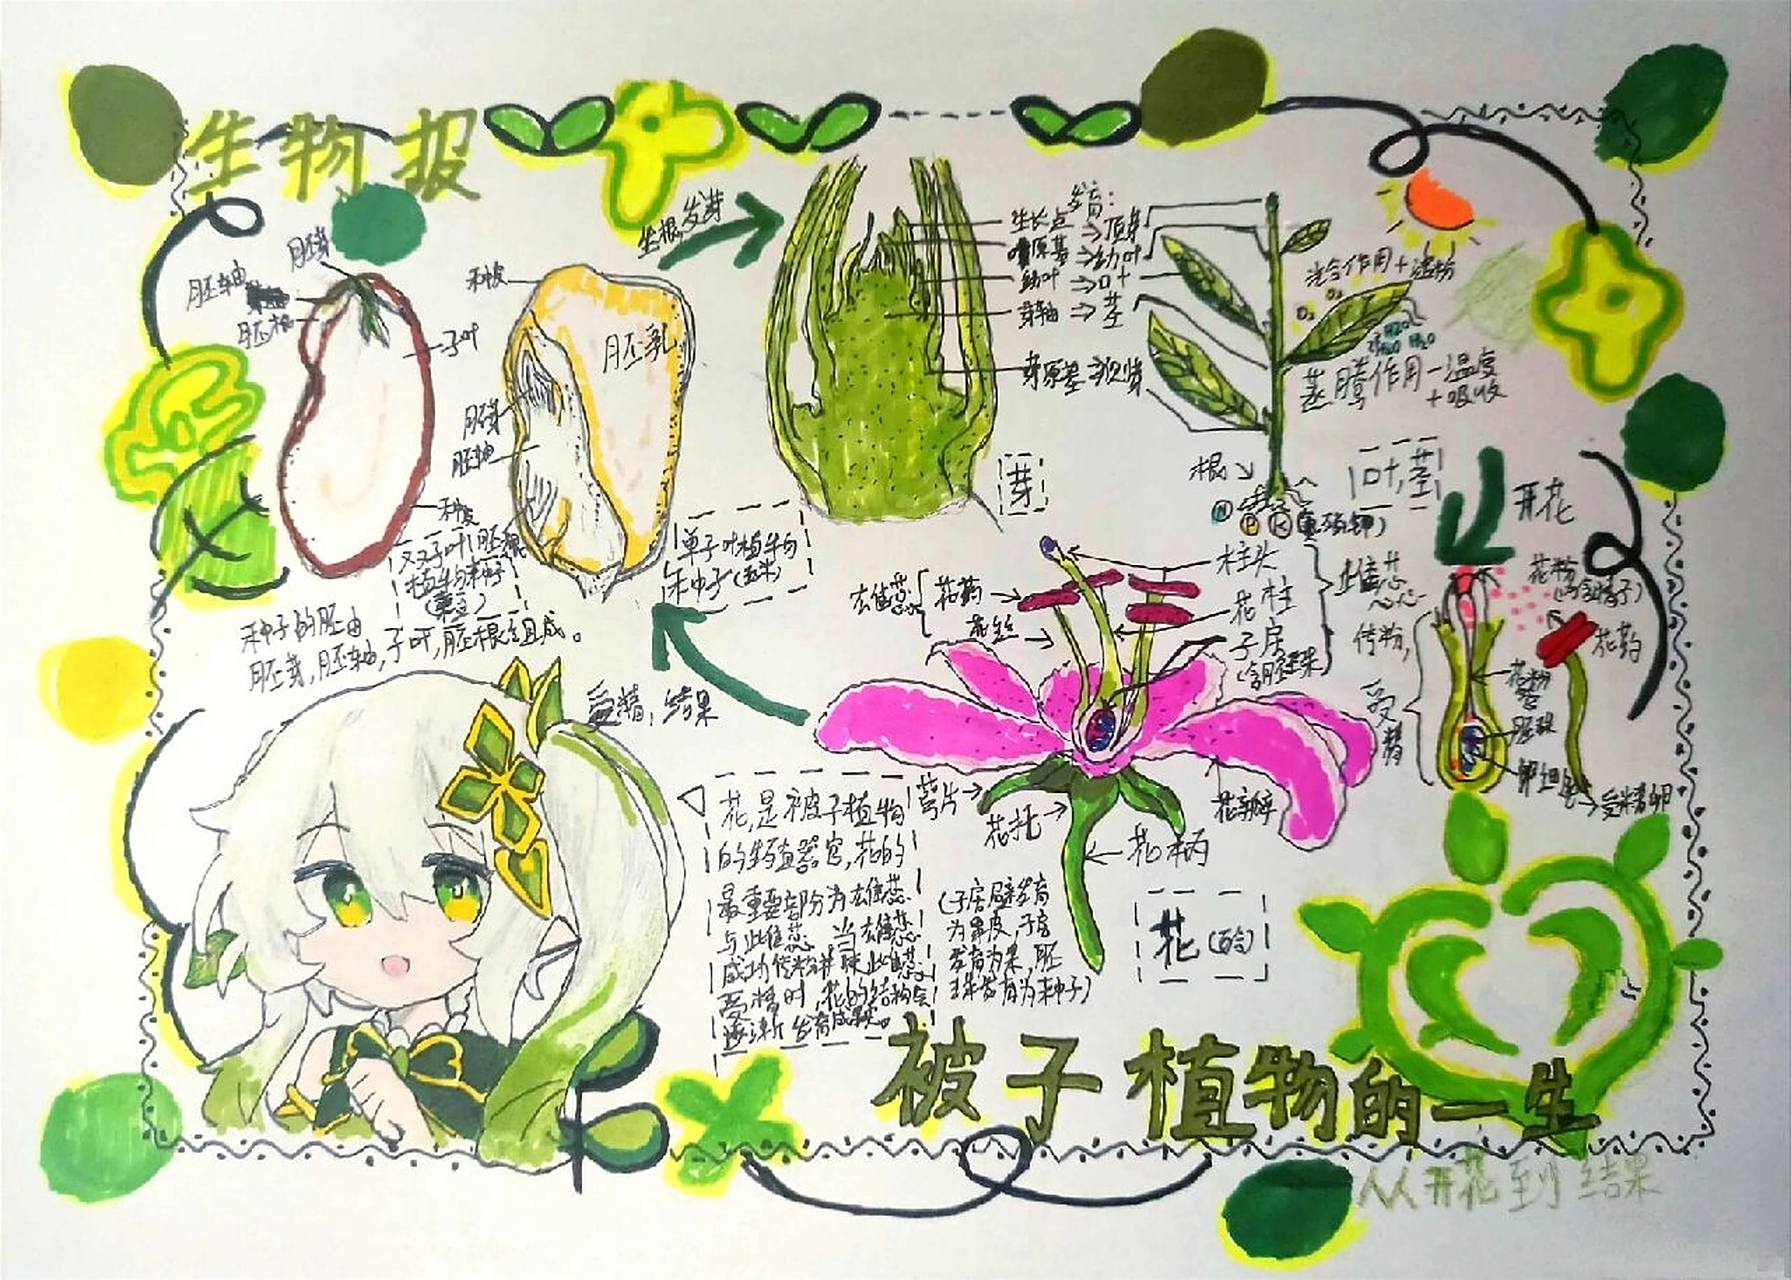 生物报
胚芽
胚轴
胚根
子叶
种皮
双子叶
植物的种子
种子的胚由
胚芽,胚轴,子叶,胚根组成。
种皮
胚乳
胚芽
胚轴
单子叶植物的
种子(玉米)
生根,发芽
发育:
生长点→顶芽
叶原基⇒幼叶
幼叶⇒叶
芽轴⇒茎
芽原基
芽
光合作用+
O₂
O₂
H2O
H2O
H2O
蒸腾作用-温度
+吸收
根
N P K
叶,茎
开花
柱头
花柱
子房
(含胚珠)
雌蕊
雄蕊
花药
花丝
萼片
花托
花柄
花瓣
花
花粉
(内含精子)
花药
花粉管
胚珠
卵细胞
受精卵
传粉,
受精
受精,结果
花,是被子植物
的生殖器官,花的
最重要部分为雄蕊
与雌蕊 当雄蕊
成功传粉并联雌蕊
受精时,花的结构会
逐渐发育成果。
(子房壁发育
为果皮,子房
发育为果,胚
珠发育为种子)
被子植物的一生
从开花到结果